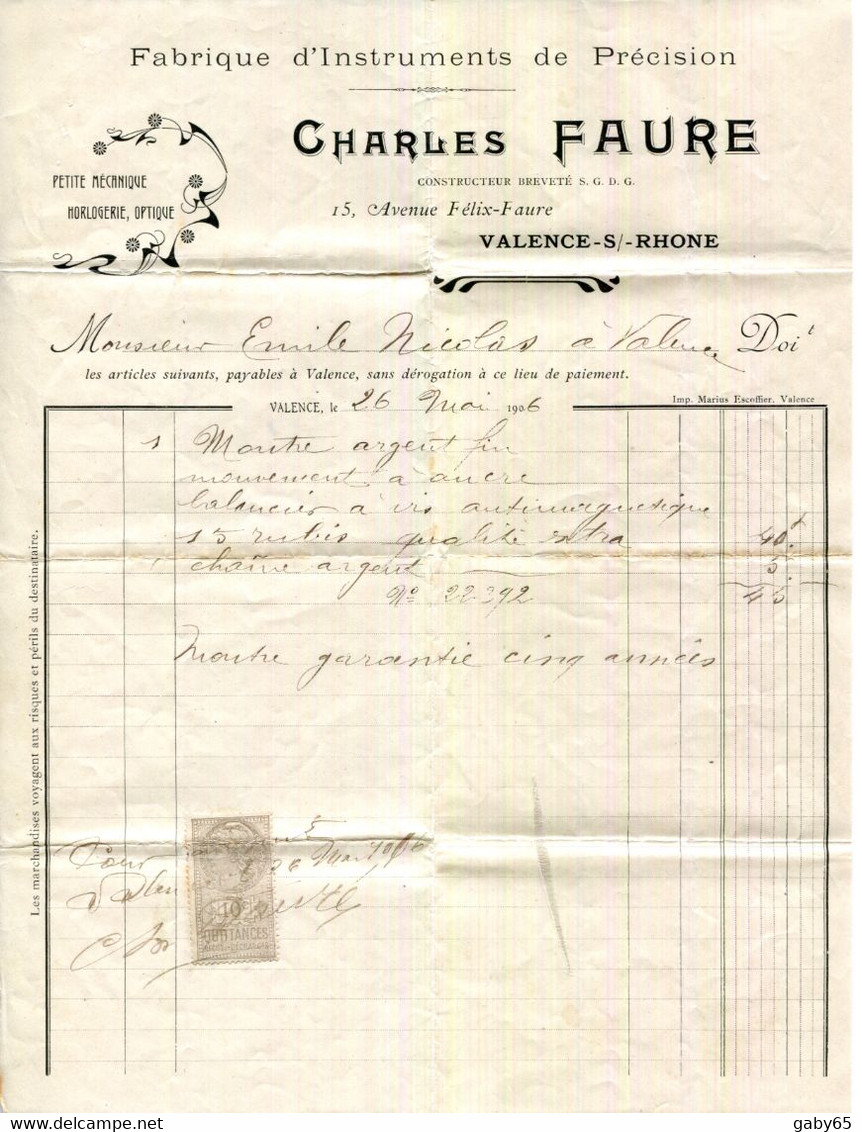 Fabrique d'Instruments de Précision
CHARLES FAURE
CONSTRUCTEUR BREVETÉ S. G. D. G.
PETITE MÉCANIQUE
HORLOGERIE, OPTIQUE
15, Avenue Félix-Faure
VALENCE-S/-RHONE
Monsieur Emile Nicolas à Valence Doit
les articles suivants, payables à Valence, sans dérogation à ce lieu de paiement.
Imp. Marius Escoffier, Valence
VALENCE, le 26 Mai 1906
1 Montre argent fin
mouvement à ancre
balancier à vis antimagnetique
15 rubis qualité extra 40f
1 chaîne argent 5.
No 22392 45
Montre garantie cinq années
Les marchandises voyagent aux risques et périls du destinataire.
Pour
26 Mai 1906
10c
QUITTANCES
www.delcampe.net
gaby65